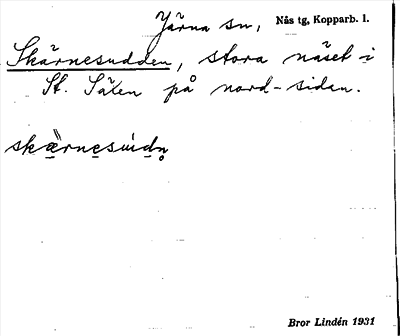 Järna sn, Nås tg, Kopparb. l.
Skärnesudden, stora näset i
St. Säten på nord-siden.
skæ̀rnesúdn̥
Bror Lindén 1931